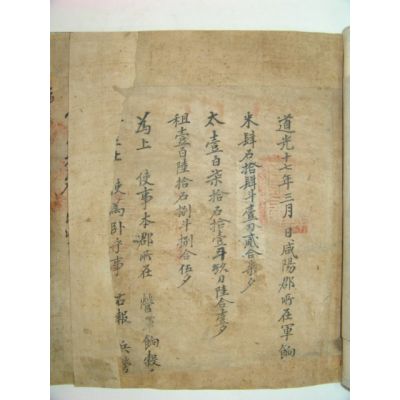 道光十七年三月 日咸陽郡所在軍餉
米肆石拾肆斗壹刀貳合柒夕
太壹百柒拾石拾壹斗玖刀陸合壹夕
租壹百陸拾石捌斗捌合伍夕
為上 使事本郡所在 營 餉穀
上 使為臥乎事 右報 兵營